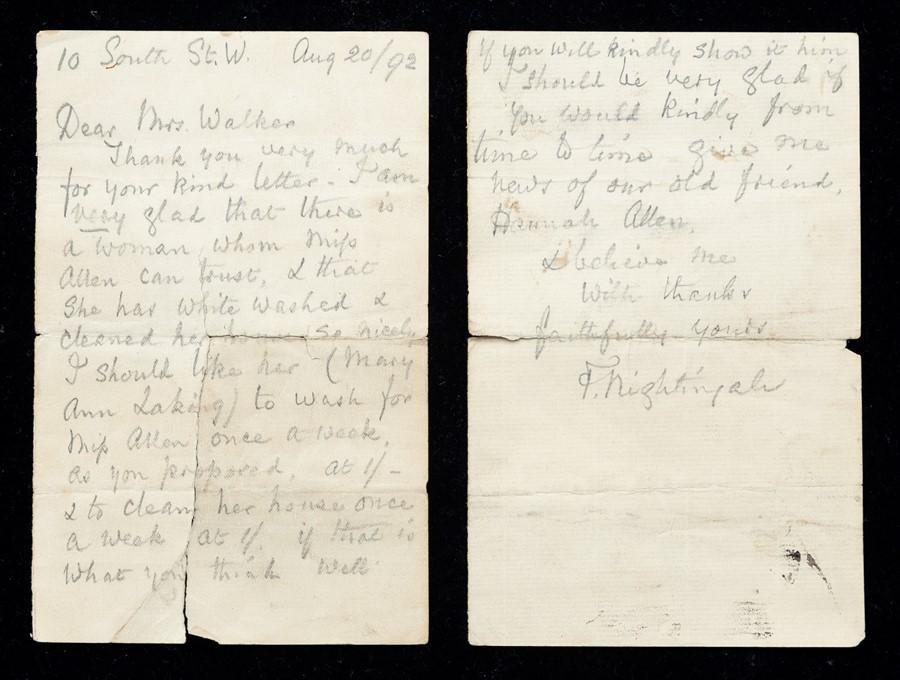 10 South St. W. Aug 20/92
Dear Mrs. Walker
Thank you very much
for your kind letter - I am
very glad that there is
a woman whom Miss
Allen can trust, & that
She has white washed &
cleaned her house so nicely
I should like her (Mary
Ann Laking) to wash for
Miss Allen once a week,
as you proposed, at 1/-
& to clean her house once
a week at 1/. if that is
what you think well.
If you will kindly show it him
I should be very glad if
you would kindly from
time to time give me
news of our old friend,
Hannah Allen.
& believe me
With thanks
faithfully yours
F. Nightingale